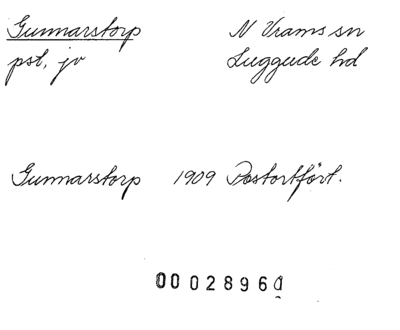 Gunnarstorp N Vrams sn
pst, jv Luggude hd
Gunnarstorp 1909 Postortfört.